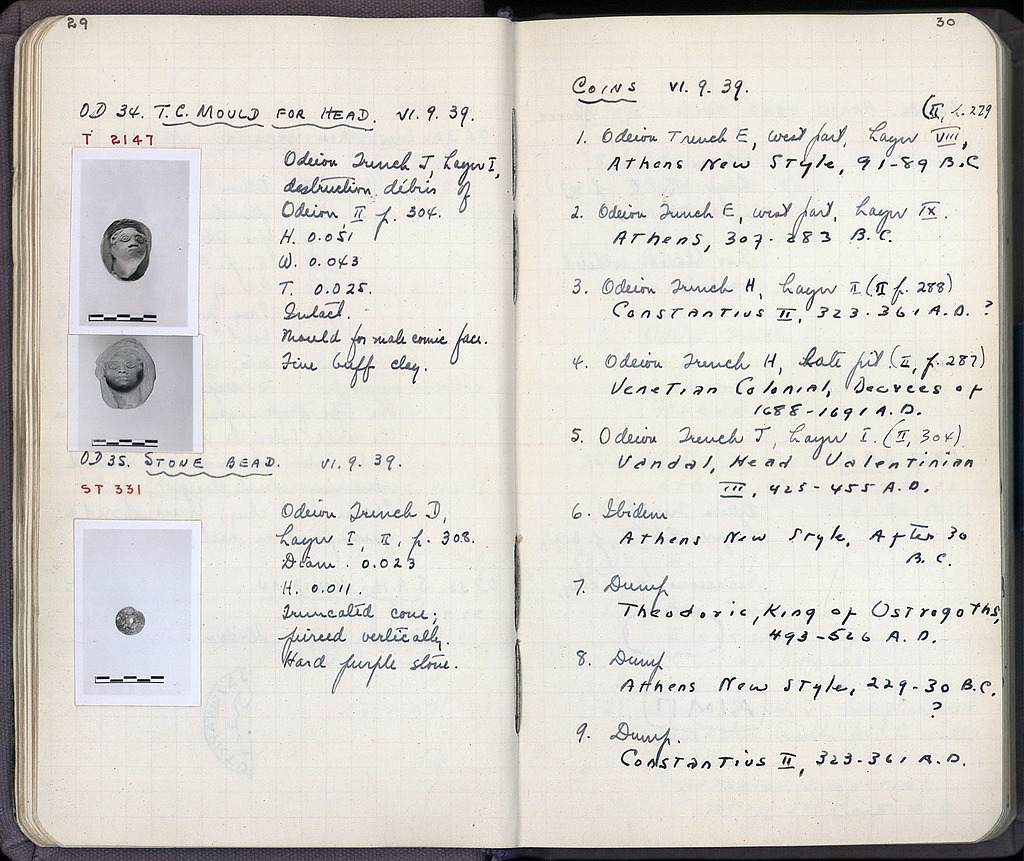 29
OD 34. T.C. MOULD FOR HEAD. VI. 9. 39.
T 2147
Odeion Trench J, Layer I,
destruction débris of
Odeion II p. 304.
H. 0.051
W. 0.043
T. 0.025.
Intact.
Mould for male comic face.
Fine buff clay.
OD 35. STONE BEAD. VI. 9. 39.
ST 331
Odeion Trench D,
Layer I, II, p. 308.
Diam. 0.023
H. 0.011.
Truncated cone;
pierced vertically.
Hard purple stone.
30
COINS VI. 9. 39.
(II, p. 229
1. Odeion Trench E, west part, Layer VIII,
Athens New Style, 91-89 B.C
2. Odeion Trench E, west part, Layer IX.
Athens, 307-283 B.C.
3. Odeion Trench H, Layer I (II p. 288)
Constantius II, 323-361 A.D. ?
4. Odeion Trench H, Late pit. (II, p. 287)
Venetian Colonial, Decrees of
1688-1691 A.D.
5. Odeion Trench J, Layer I. (II, 304)
Vandal, Head Valentinian
III, 425-455 A.D.
6. Ibidem
Athens New Style, After 30
B.C.
7. Dump
Theodoric, King of Ostrogoths,
493-526 A.D.
8. Dump
Athens New Style, 229-30 B.C.
?
9. Dump.
Constantius II, 323-361 A.D.